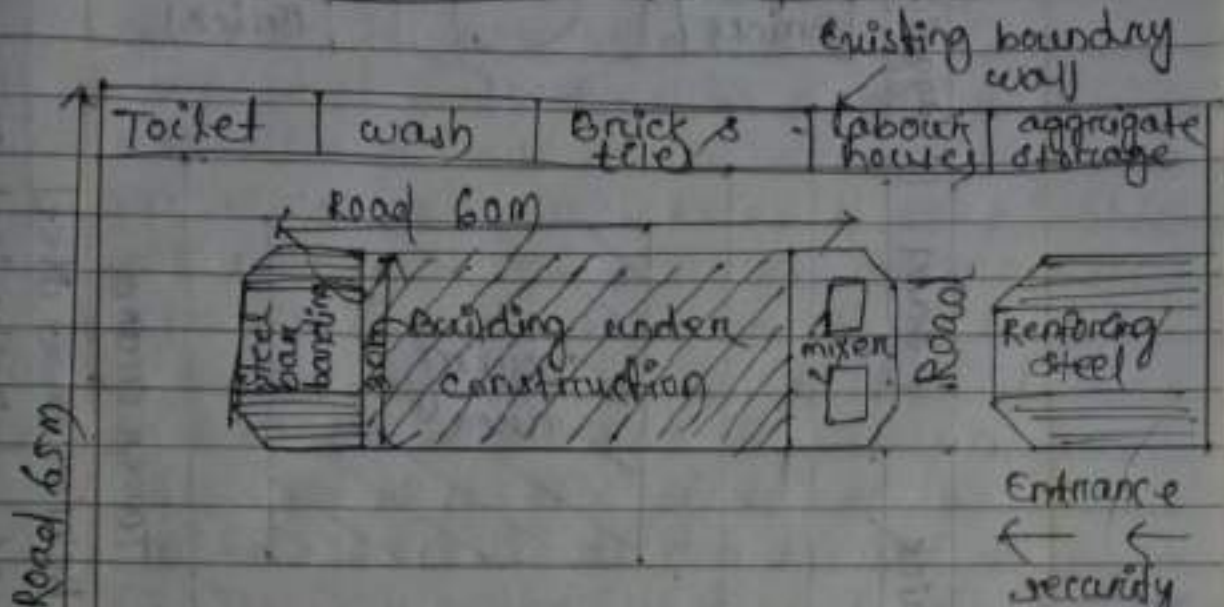 Existing boundry
wall
Toilet
wash
Bricks
tile
labour
houses
aggrigate
storage
Road 60m
Steel
bar
banding
Building under
construction
mixer
Road
Renforcing
steel
Road 65m
Entrance
security